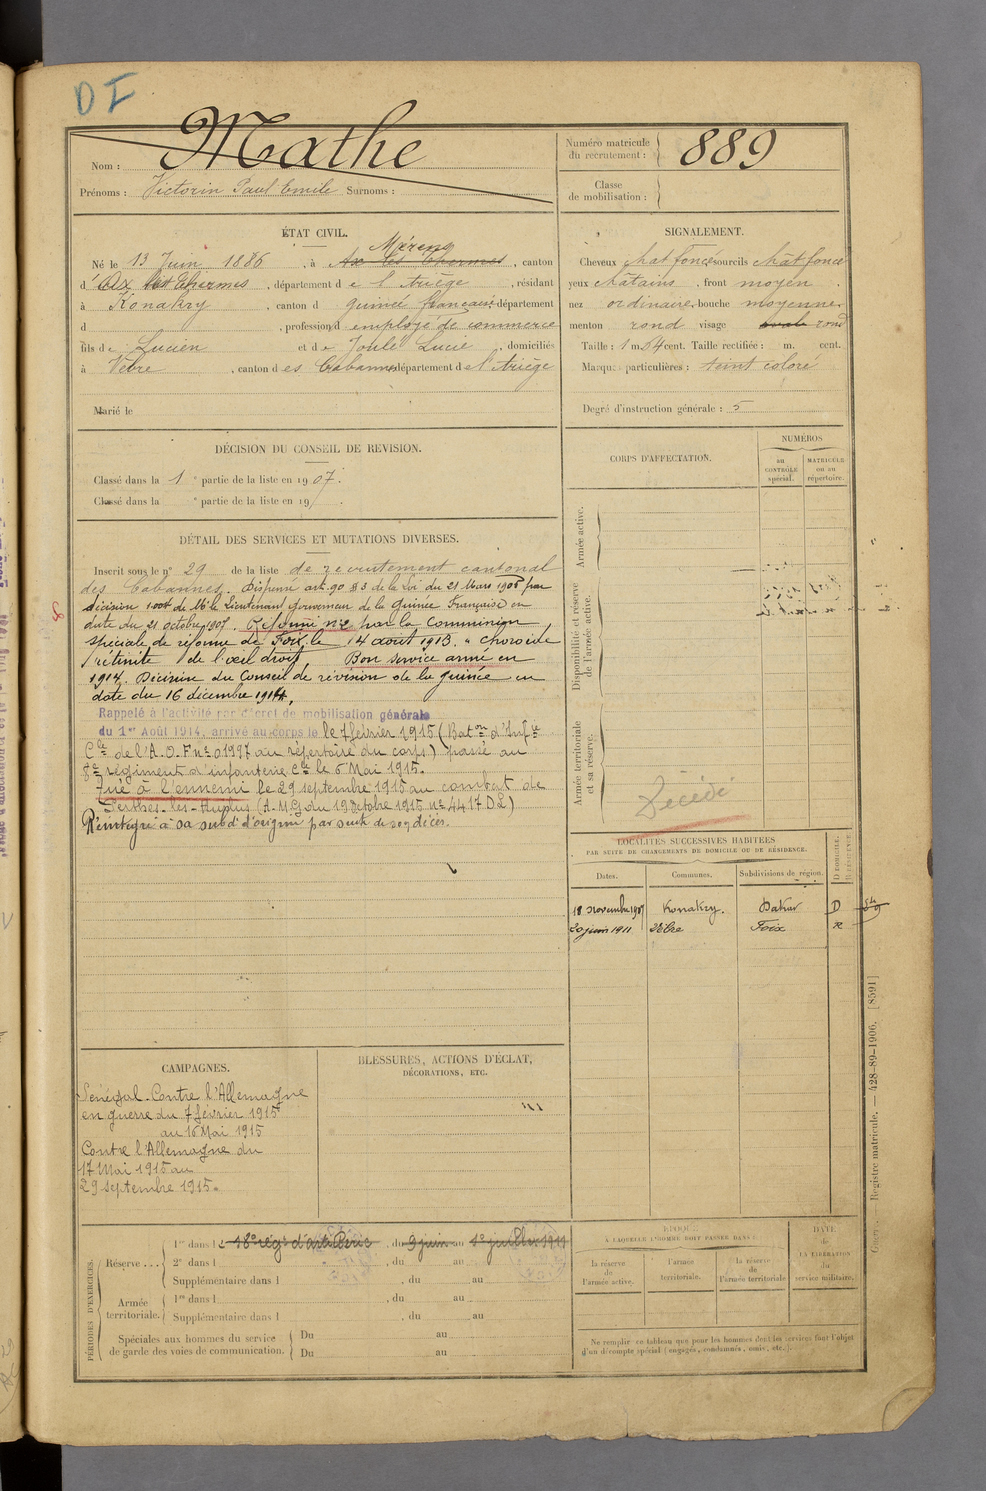 DI
Nom : Mathe
Prénoms : Victorin Paul Emile Surnoms :
Numéro matricule du recrutement : 889
Classe de mobilisation :
ÉTAT CIVIL.
Mérens
Né le 13 Juin 1886, à Ax les Thermes, canton
d'Ax les Thermes, département de l'Ariège, résidant
à Konakry, canton d guinée française département
d , profession d employé de commerce
fils de Lucien et de Joulé Lucie, domiciliés
à Vèbre, canton des Cabannes département de l'Ariège
Marié le
SIGNALEMENT.
Cheveux chat foncé sourcils chât foncé
yeux châtains, front moyen
nez ordinaire, bouche moyenne
menton rond visage ovale rond
Taille : 1 m. 64 cent. Taille rectifiée : m. cent.
Marques particulières : teint coloré
Degré d'instruction générale : 5
DÉCISION DU CONSEIL DE REVISION.
Classé dans la 1e partie de la liste en 1907.
Classé dans la e partie de la liste en 19
DÉTAIL DES SERVICES ET MUTATIONS DIVERSES.
Inscrit sous le n° 29 de la liste de recrutement cantonal
des Cabannes. Dispensé art. 90 § 3 de la Loi du 21 Mars 1905 par
décision de Mr le Lieutenant Gouverneur de la Guinée Française en
date du 21 octobre 1907. Réformé n°2 par la Commission
spéciale de réforme de Foix le 14 août 1913. "choroïde
rétinite de l'œil droit, Bon service armé en
1914. Décision du Conseil de révision de la guinée en
date du 16 décembre 1914.
Rappelé à l'activité par décret de mobilisation générale
du 1er Août 1914, arrivé au corps le le 7 février 1915 (Baton d'Infie
Cle de l'A.O.F n° 01997 au répertoire du corps) passé au
8e régiment d'infanterie Cle le 6 Mai 1915.
Tué à l'ennemi le 29 septembre 1915 au combat de
Perthes-les-Hurlus (A.M.G du 19 Octobre 1915 n° 4417 D2)
Réintégré à sa subd d'origine par suite de son décès.
CORPS D'AFFECTATION.
NUMÉROS
au CONTRÔLE spécial.
MATRICULE ou au répertoire.
Armée active.
Disponibilité et réserve de l'armée active.
Armée territoriale et sa réserve.
Décédé
LOCALITÉS SUCCESSIVES HABITÉES
PAR SUITE DE CHANGEMENTS DE DOMICILE OU DE RÉSIDENCE.
D DOMICILE. R RÉSIDENCE.
Dates. Communes. Subdivisions de région.
18 novembre 1907 Konakry. Dakar D
20 juin 1911 Vèbre Foix R
CAMPAGNES.
Sénégal. Contre l'Allemagne
en guerre du 7 février 1915
au 16 Mai 1915
Contre l'Allemagne du
17 Mai 1915 au
29 septembre 1915.
BLESSURES, ACTIONS D'ÉCLAT,
DÉCORATIONS, ETC.
PÉRIODES D'EXERCICES.
Réserve ...
1re dans le 18e régt d'artillerie, du 9 juin au 1er juillet 1911
2e dans l , du au
Supplémentaire dans l , du au
Armée territoriale.
1re dans l , du au
Supplémentaire dans l , du au
Spéciales aux hommes du service de garde des voies de communication.
Du au
Du au
ÉPOQUE
À LAQUELLE L'HOMME DOIT PASSER DANS :
la réserve de l'armée active.
l'armée territoriale.
la réserve de l'armée territoriale
DATE de LA LIBÉRATION du service militaire.
Ne remplir ce tableau que pour les hommes dont les services font l'objet
d'un décompte spécial (engagés, condamnés, omis, etc.).
Registre matricule. — 428-89-1906. [8591]